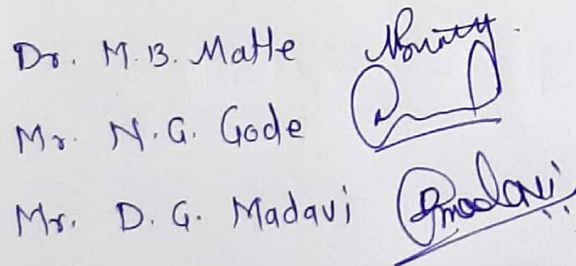 Dr. M.B. Matte
Mr. N.G. Gode
Mr. D.G. Madavi